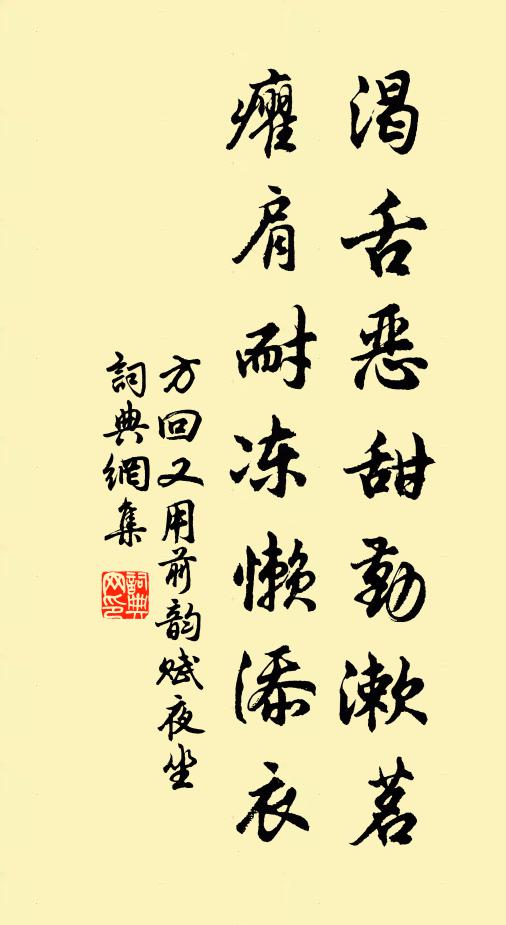 渴舌恶甜勤漱茗
癯肩耐冻懒添衣
方回又用前韵赋夜坐
詞典網集
詞典网印